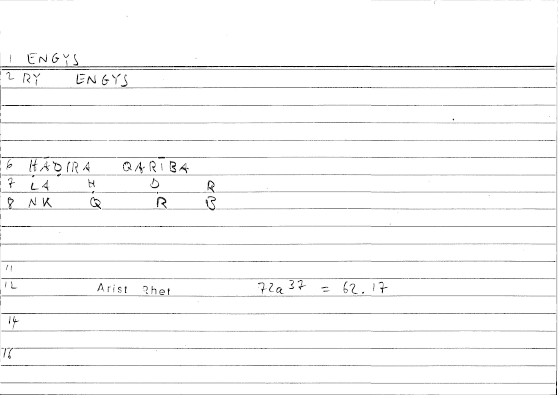 1 ENGYS
2 RY ENGYS
6 ḤĀḌIRA QARĪBA
7 LA Ḥ Ḍ R
8 NK Q R B
11
12 Arist Rhet 72a37 = 62.17
14
16